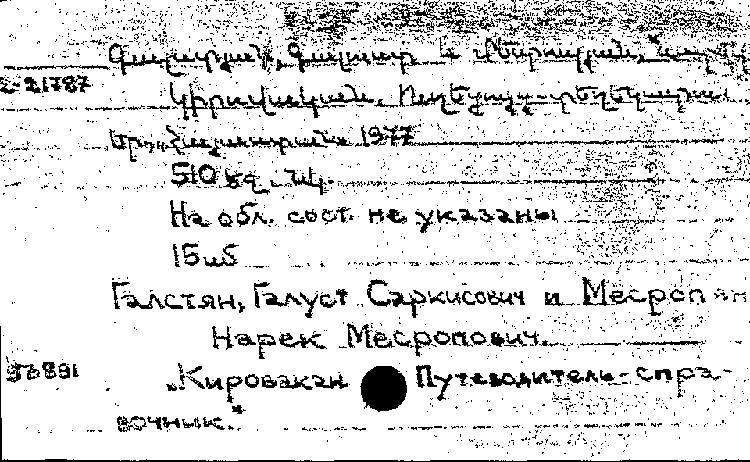 Գալստյան, Գալուստ և Մեսրոպյան, Նարեկ
2-21787
Կիրովական. Ուղեցույց-տեղեկատու
Եր., Հայաստան, 1977
510 էջ. նկ.
На обл. сост. не указаны
Галстян, Галуст Саркисович и Месропян
Нарек Месропович.
"Кировакан Путеводитель-спра-
вочник."